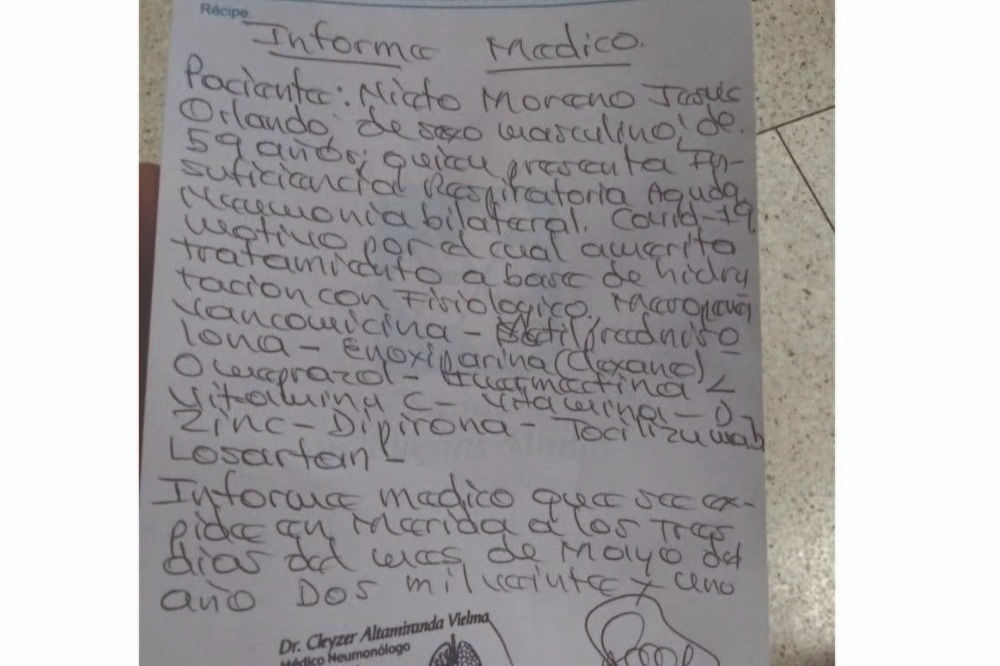 Récipe
Informe Medico.
Paciente: Nieto Moreno Jesús
Orlando, de sexo masculino, de
59 años, quien presenta In-
suficiencia Respiratoria Aguda
Neumonia bilateral. Covid-19,
motivo por el cual amerito
tratamiento a base de hidra
tacion con Fisiologico. Meropenem
Vancomicina - Metilpredniso
lona - Enoxiparina (Clexane) -
Omeprazol - Ivermectina
Vitamina C - Vitamina - D
Zinc - Dipirona - Tocilizumab
Losartan -
Informe medico que se ex-
pide en Merida a los Tres
dias del mes de Mayo del
año Dos mil veinte y uno
Dr. Cleyzer Altamiranda Vielma
Médico Neumonólogo